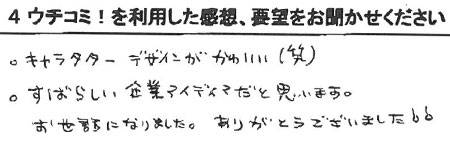 4 ウチコミ!を利用した感想、要望をお聞かせください
。キャラクター デザインがかわいい(笑)
。すばらしい企業アイディアだと思います。
お世話になりました。ありがとうございました♭♭